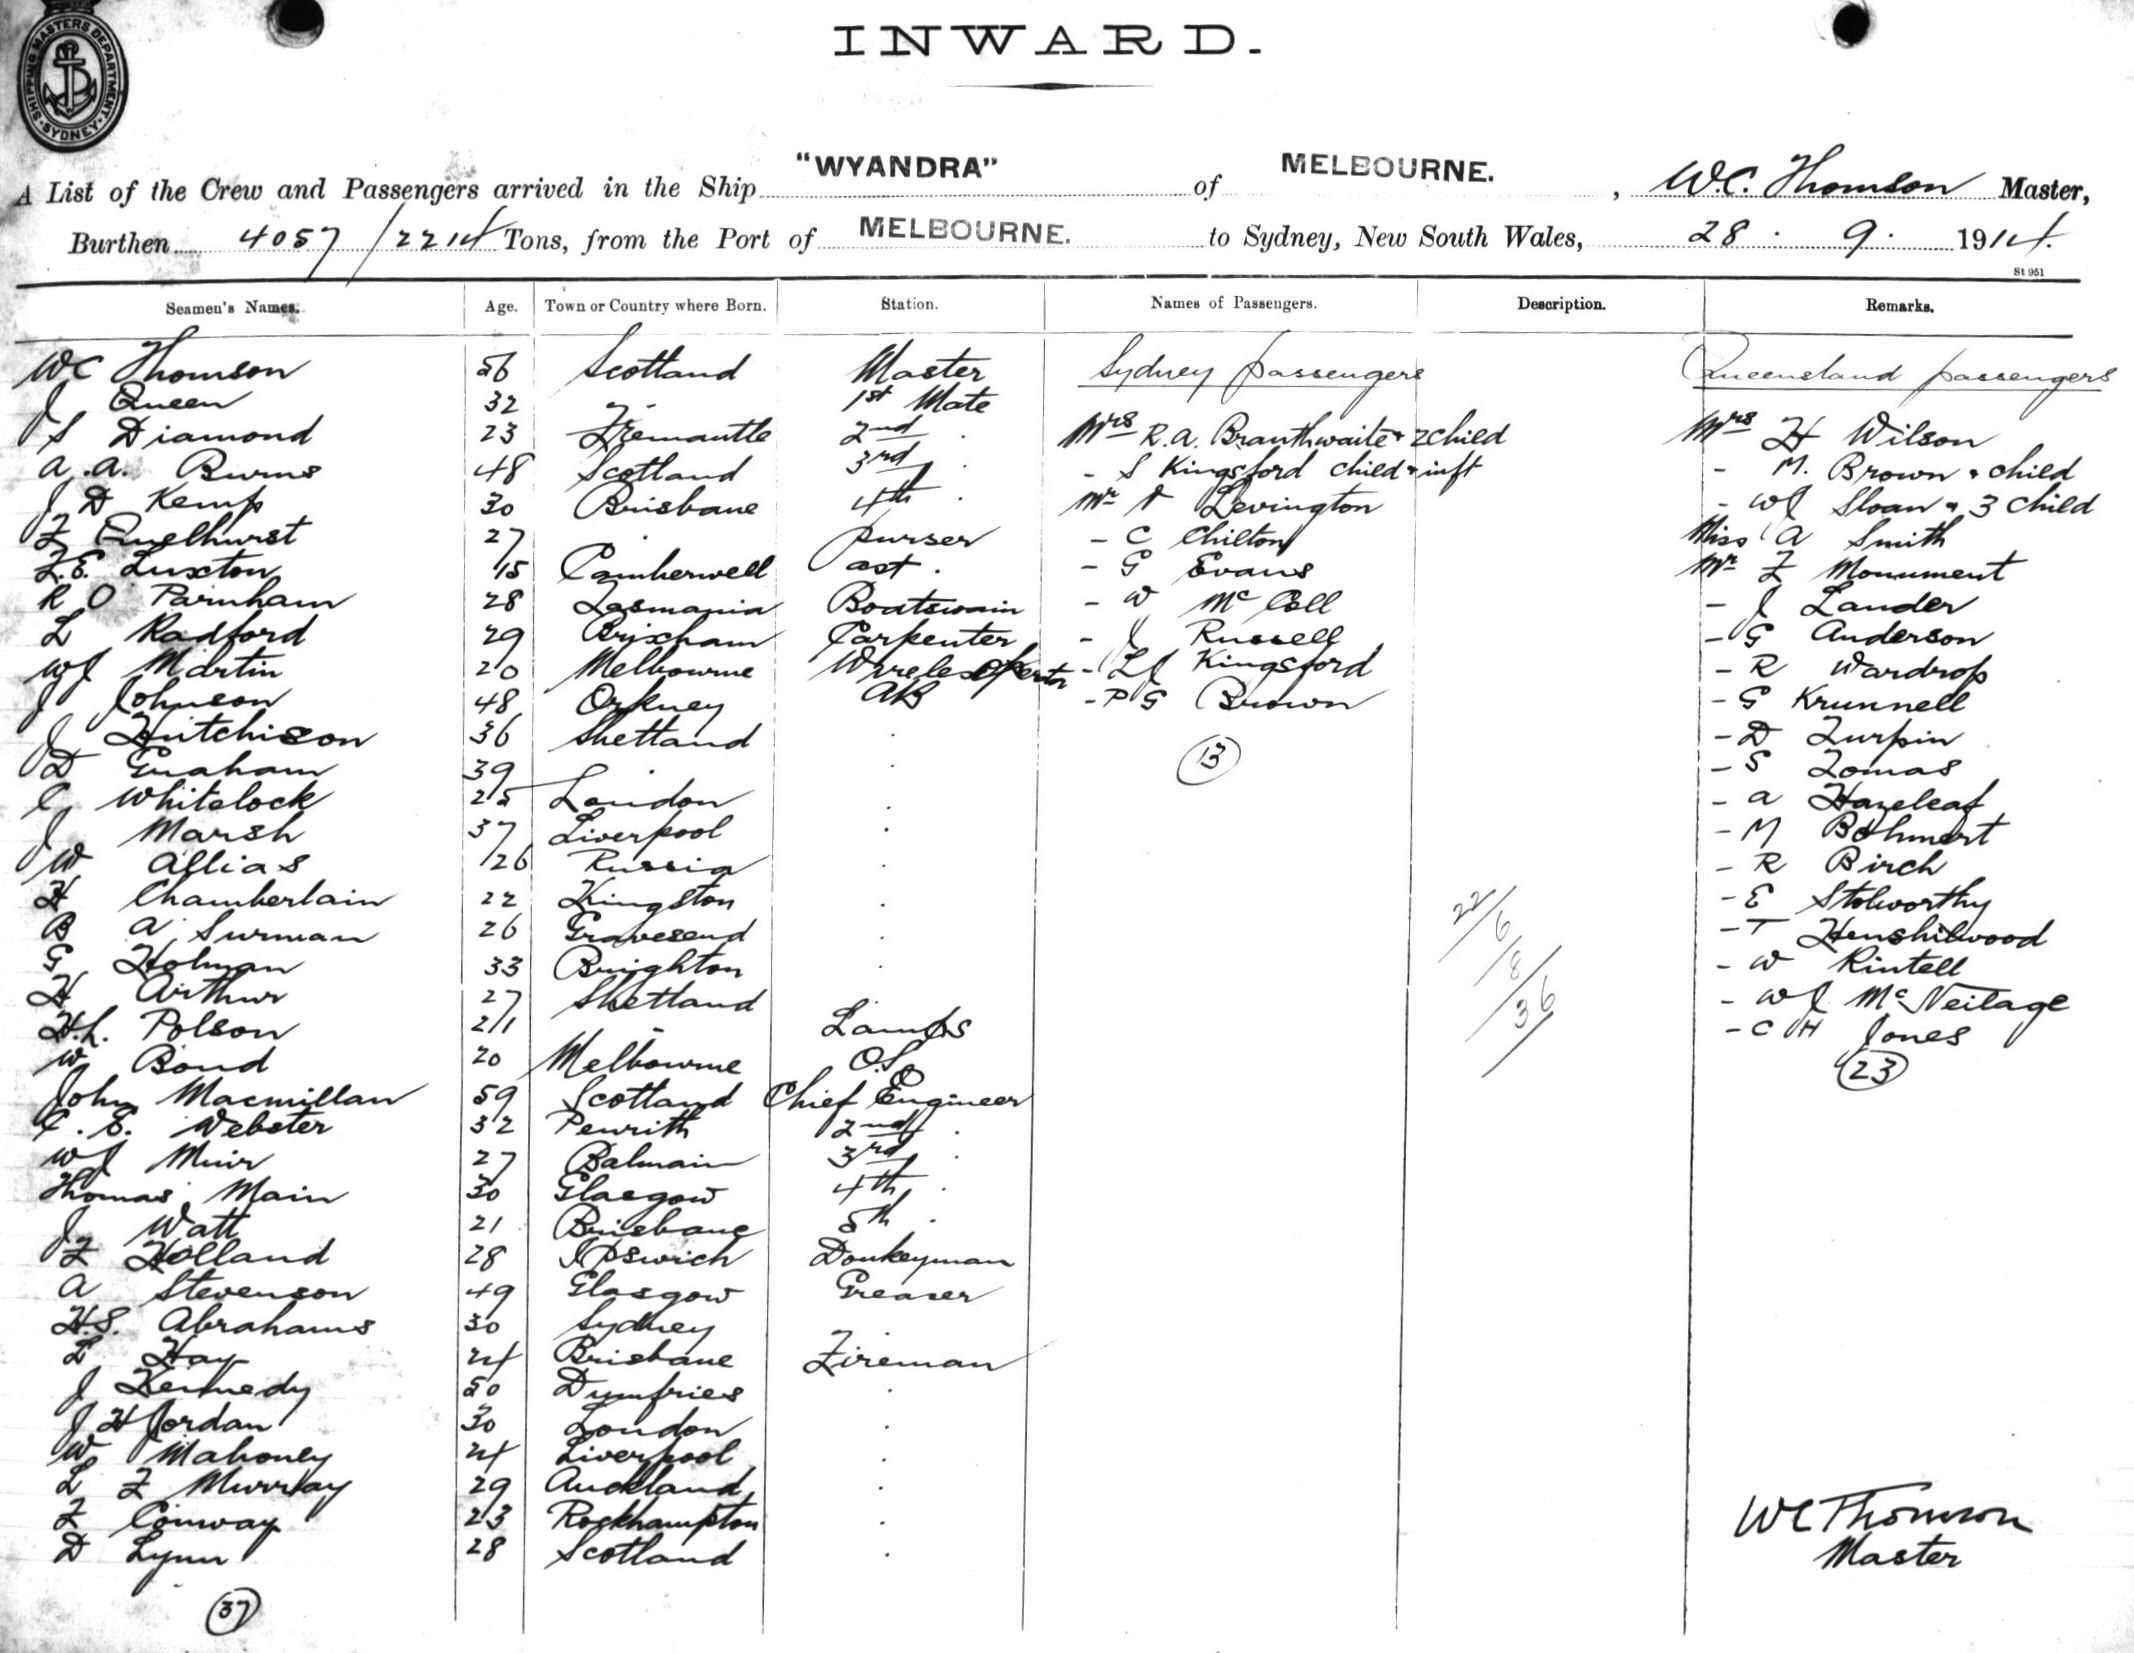 SHIPPING MASTERS DEPARTMENT. SYDNEY.
INWARD.
A List of the Crew and Passengers arrived in the Ship "WYANDRA" of MELBOURNE. , W.C. Thomson Master,
Burthen 4057/2214 Tons, from the Port of MELBOURNE. to Sydney, New South Wales, 28 . 9 . 1914.
St 951
Seamen's Names. Age. Town or Country where Born. Station. Names of Passengers. Description. Remarks.
WC Thomson 56 Scotland Master Sydney passengers Queensland passengers
J Queen 32 " 1st Mate
S Diamond 23 Fremantle 2nd . Mrs R.A. Branthwaite + 2 child Mrs H Wilson
A.A. Burns 48 Scotland 3rd . - S Kingsford child + inft - M. Brown + child
J D Kemp 30 Brisbane 4th . Mr Levington - WJ Sloan + 3 child
F Quelhurst 27 . purser - C Chilton Miss A Smith
F.E. Luxton 15 Camberwell ast . - G Evans Mr F Monument
R O Parnham 28 Tasmania Boatswain - W McColl - J Lander
L Radford 29 Brixham Carpenter - J Russell - G Anderson
WJ Martin 20 Melbourne Wireless - LJ Kingsford - R Wardrop
J Johnson 48 Orkney AB - P G Brown - G Krunnell
J Hutchison 36 Shetland . (13) - D Turpin
D Graham 39 . . - S Tomas
C Whitelock 25 London . - A Hazeleaf
J Marsh 37 Liverpool . - M Bohmert
W Allias 26 Russia . - R Birch
H Chamberlain 22 Kingston . 22/ - E Stolworthy
B A Surman 26 Gravesend . 6/ - T Henshilwood
G Holman 33 Brighton . /8/ - W Rintell
H Arthur 27 Shetland . 36 - WJ McNeilage
H.L. Polson 21 - Lamps - C H Jones
W Bond 20 Melbourne O.S. (23)
John Macmillan 59 Scotland Chief Engineer
C.E. Webster 32 Penrith 2nd .
WJ Muir 27 Balmain 3rd .
Thomas Main 30 Glasgow 4th .
J Watt 21 Brisbane 5th .
F Holland 28 Ipswich Donkeyman
A Stevenson 49 Glasgow Greaser
H.S. Abrahams 30 Sydney .
L Hay 24 Brisbane Fireman
J Kennedy 50 Dumfries .
J H Jordan 30 London .
W Mahoney 24 Liverpool .
L F Murray 29 Auckland . WC Thomson
F Conway 23 Rockhampton . Master
D Lynn 28 Scotland .
(37)